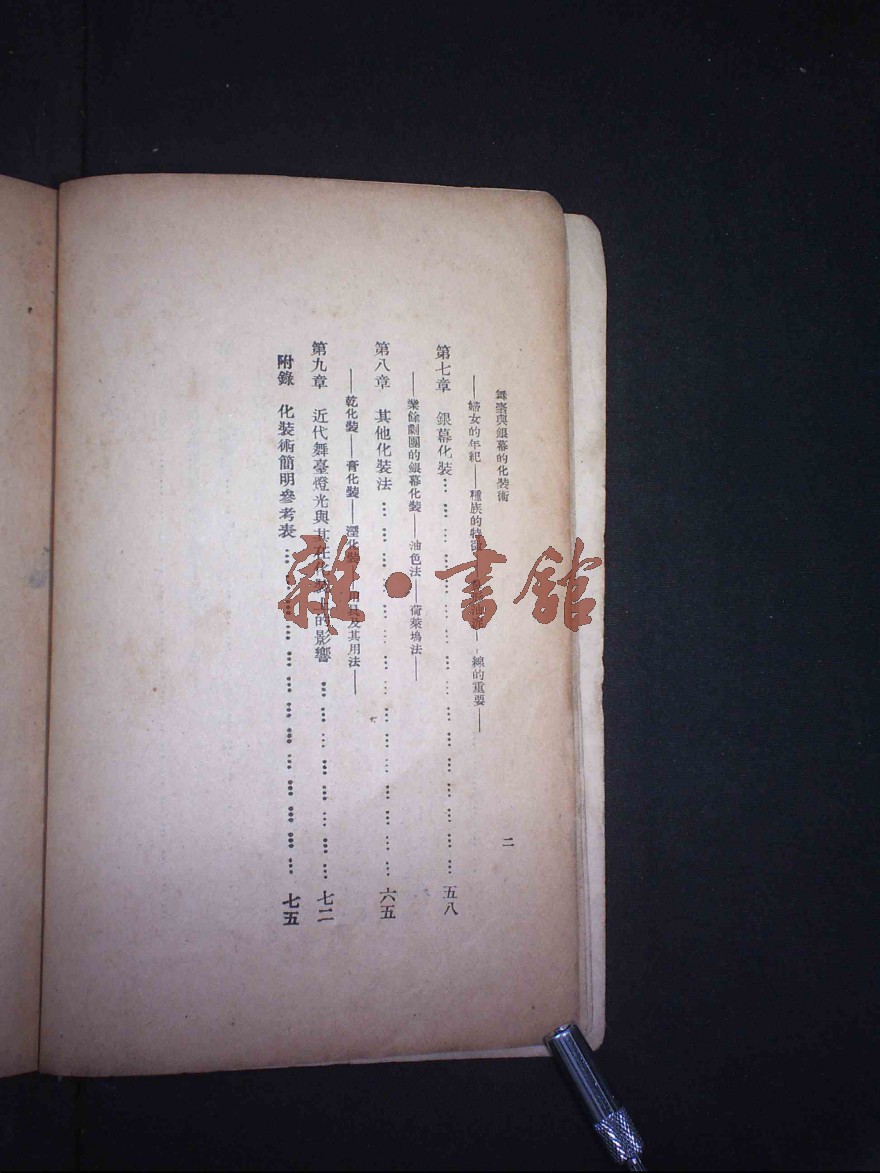 舞臺與銀幕的化裝術
二
——婦女的年紀——種族的特徵——線的重要——
第七章 銀幕化裝……五八
——業餘劇團的銀幕化裝——油色法——荷萊塢法——
第八章 其他化裝法……六五
——乾化裝——膏化裝——溼化裝——用具及其用法——
第九章 近代舞臺燈光與其在化裝上的影響……七二
附錄 化裝術簡明參考表……七五
雜·書館